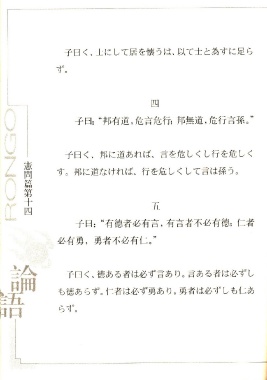 子曰く、士にして居を懐うは、以て士と為すに足ら
ず。
四
子曰：“邦有道，危言危行；邦無道，危行言孫。”
子曰く、邦に道あれば、言を危しくし行を危しく
す。邦に道なければ、行を危しくして言は孫う。
五
子曰：“有徳者必有言，有言者不必有徳；仁者
必有勇，勇者不必有仁。”
子曰く、徳ある者は必ず言あり。言ある者は必ずし
も徳あらず。仁者は必ず勇あり。勇者は必ずしも仁あ
らず。
RONGO
憲問篇第十四
論語